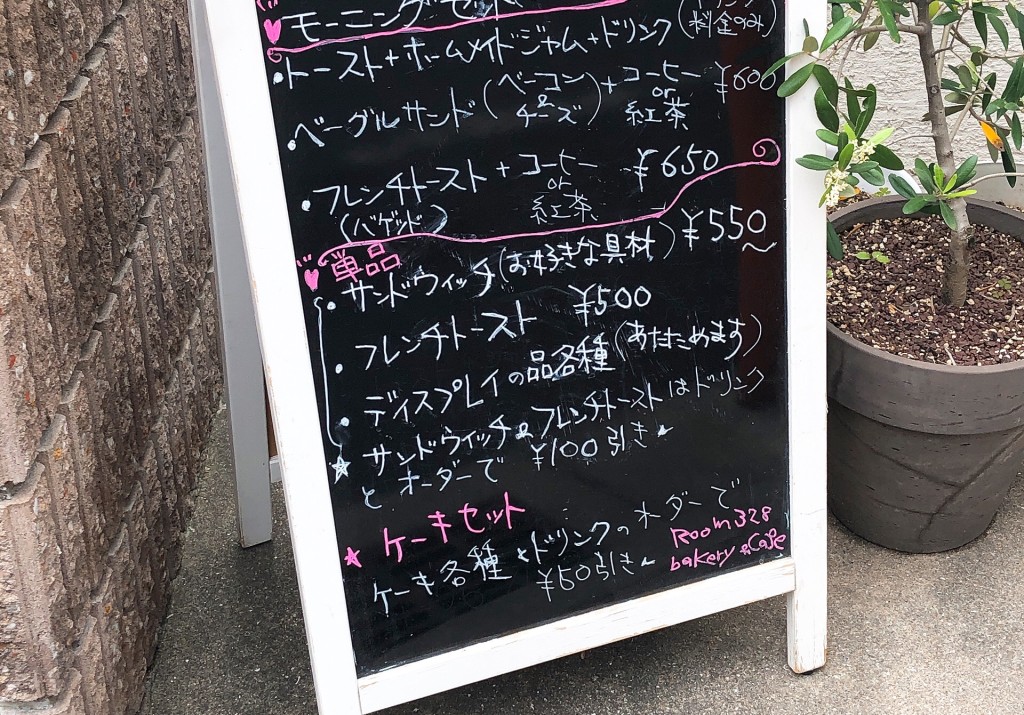 モーニングセット
・トースト+ホームメイドジャム+ドリンク(料金のみ)
・ベーグルサンド(ベーコン&チーズ)+コーヒーor紅茶 ¥600
・フレンチトースト+コーヒーor紅茶 ¥650
(バゲット)
単品
・サンドウィッチ(お好きな具材)¥550〜
・フレンチトースト ¥500
・ディスプレイの品各種(あたためます)
☆サンドウィッチ&フレンチトーストはドリンク
とオーダーで ¥100引き
★ケーキセット
ケーキ各種+ドリンクのオーダーで
¥50引き
Room 328
bakery & Cafe